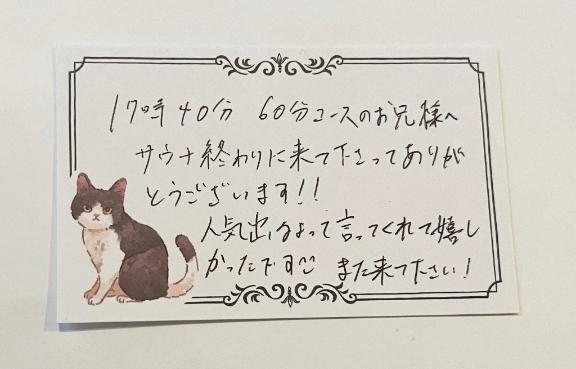 17時40分 60分コースのお兄様へ
サウナ終わりに来て下さってありが
とうございます!!
人気出なよって言ってくれて嬉し
かったです また来て下さい!